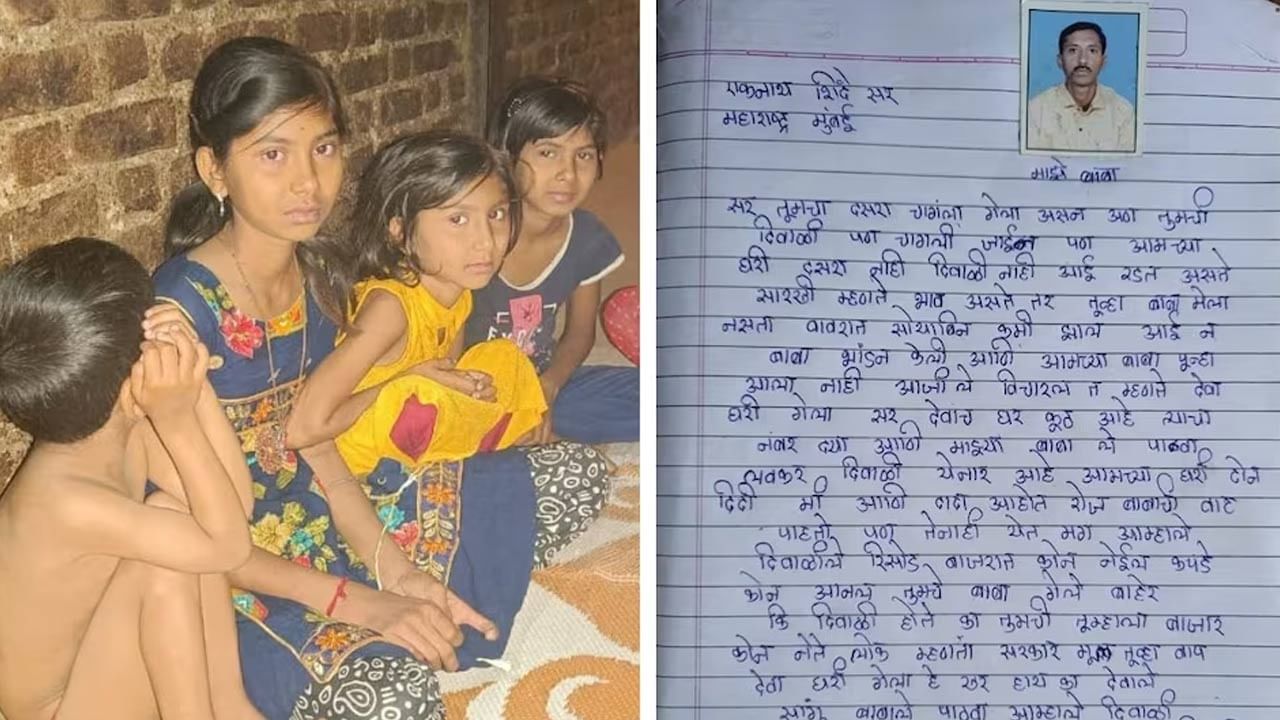 एकनाथ शिंदे सर
महाराष्ट्र मुंबई
माझे बाबा
सर तूमचा दसरा चागंला गेला असन अण तुमची
दिवाळी पण चागली जाईन पण आमच्या
घरी दसरा नाही दिवाळी नाही आई रडत असते
सारखी म्हणते भाव असते तर तूव्हा बाबा मेला
नसता वावरात सोयाबिन कमी झालं आई न
बाबा भांडन केली आणि आमच्या बाबा पून्हा
आला नाही आजीले विचारल त म्हणते देवा
घरी गेला सर देवाच घर कूठ आहे त्याचा
नंबर द्या आणि माझ्या बाबा ले पाठवा
लवकर दिवाळी येनार आहे आमच्या घरी दोन
दिदी मी आणि दादा आहोत रोज बाबाची वाट
पाहतो पण तेनाही येत मग आम्हाले
दिवाळीले रिसोड बाजरात कोन नेईल कपडे
कोन आनल तूमचे बाबा गेले बाहेर
कि दिवाळी होते का तुमची तूम्हाला बाजार
कोन नेते लोक म्हणता सरकार मूळ तूव्हा बाप
देवा घरी गेला हे खर हाय का देवाले
सांगू बाबाले पाठवा आम्हाले दिवाळी